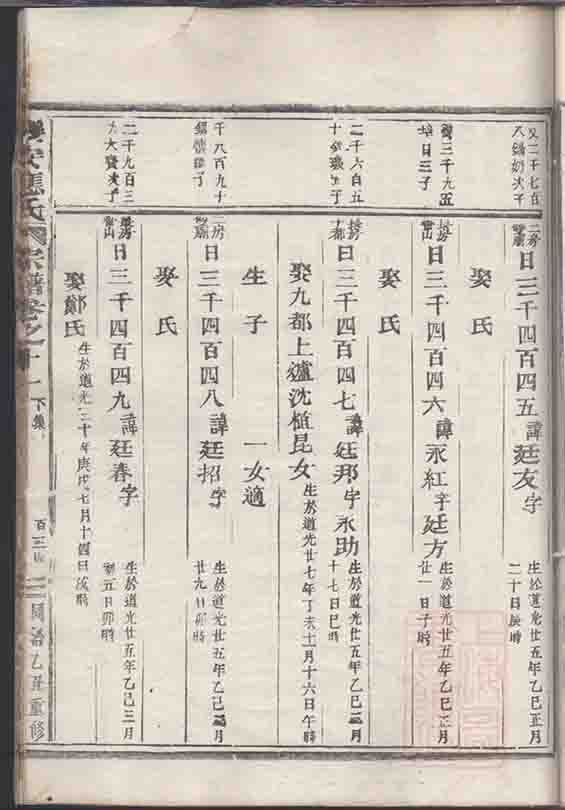 又二千七百
八 奶次子
二房
日三千四百四五諱廷友字
生於道光廿五年乙巳正月
二十日辰時
娶氏
三千九五
日三子
長房
日三千四百四六諱永紅字廷方
生於道光廿五年乙巳正月
廿一日子時
娶氏
二千六百五
十 子
長房
十都
日三千四百四七諱廷邦字永助
生於道光廿五年乙巳二月
十七日巳時
娶九都上爐沈植昆女
生於道光廿七年丁亥十一月十六日午時
生子 一女適
千八百九十
子
二房
日三千四百四八諱廷招字
生於道光廿五年乙巳 月
廿九日卯時
娶氏
二千九百三
六大 次子
日三千四百四九諱廷春字
生於道光廿五年乙巳三月
初五日卯時
娶鄭氏
生於道光三十年庚戌七月十四日戌時
樂安應氏 宗譜卷之十一 下集 百三 同治乙丑重修